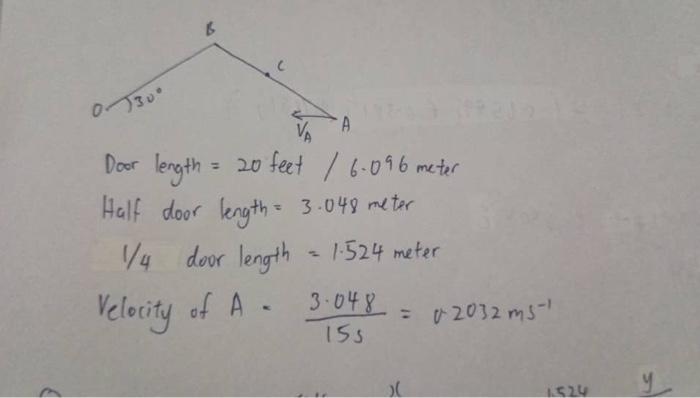 B
C
O 30°
V_A A
Door length = 20 feet / 6.096 meter
Half door length = 3.048 meter
1/4 door length = 1.524 meter
Velocity of A = 3.048 / 15s = 0.2032 ms⁻¹
x 1.524 y